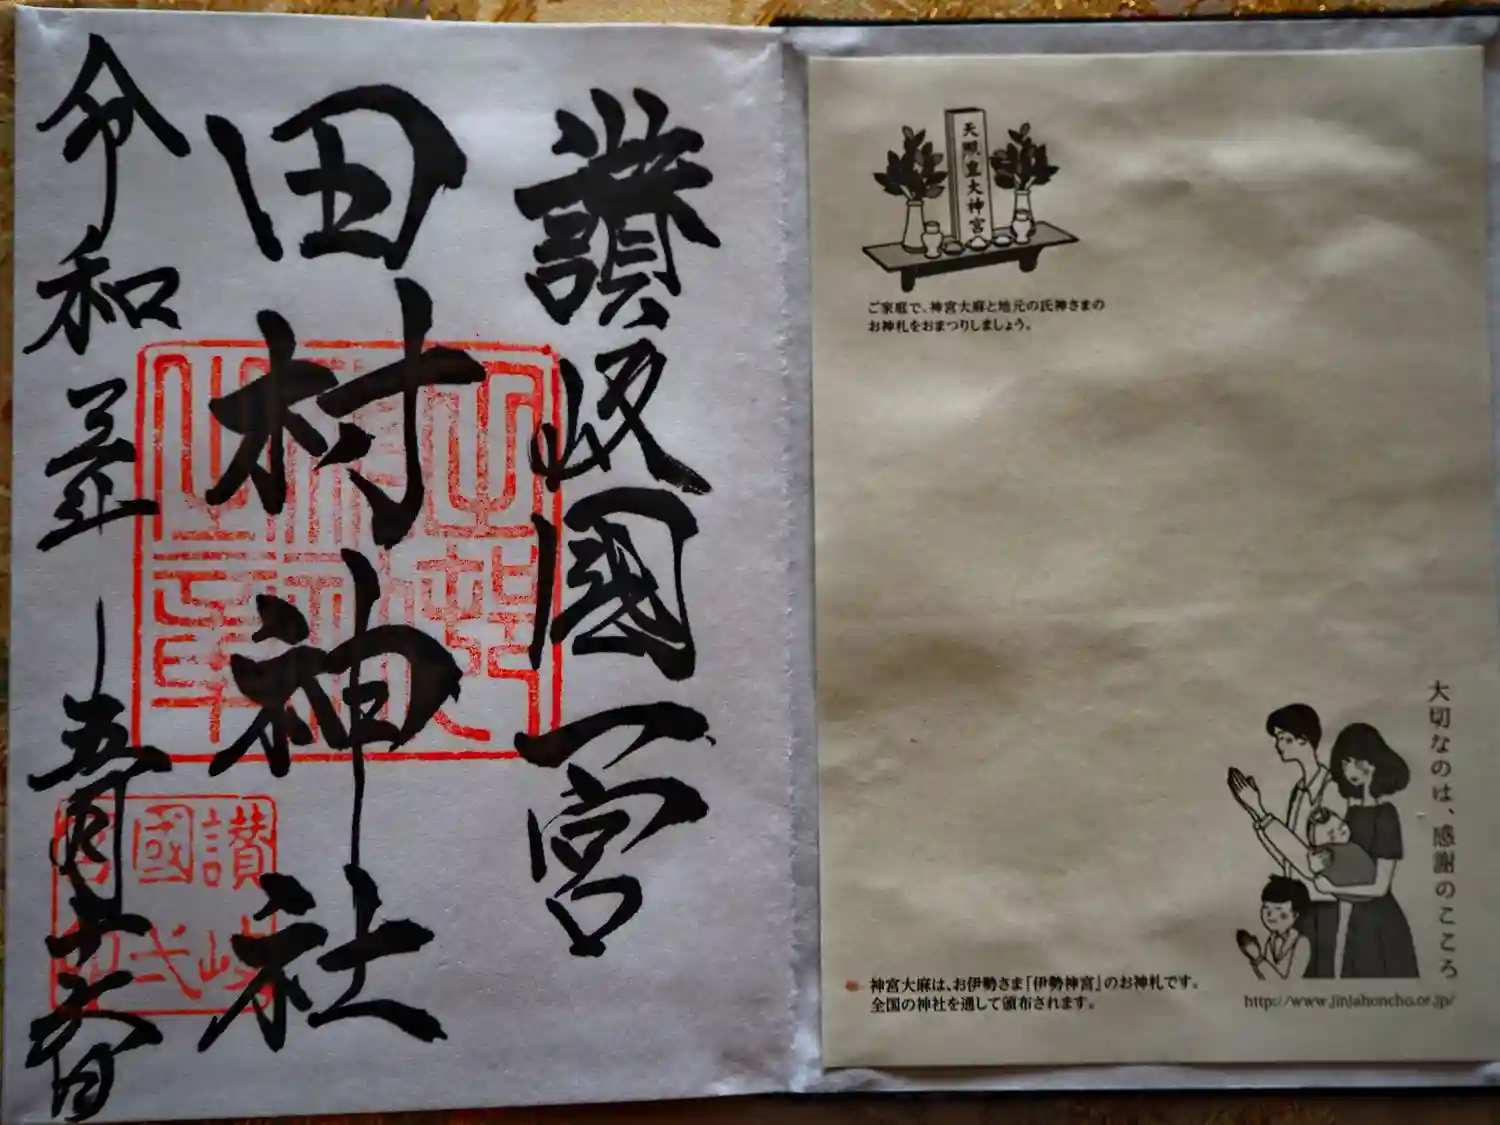 讃岐國一宮
田村神社
令和
五月
日
讃岐
國弌
天照皇大神宮
ご家庭で、神宮大麻と地元の氏神さまの
お神札をおまつりしましょう。
大切なのは、感謝のこころ
神宮大麻は、お伊勢さま「伊勢神宮」のお神札です。
全国の神社を通して頒布されます。
http://www.jinjahoncho.or.jp/